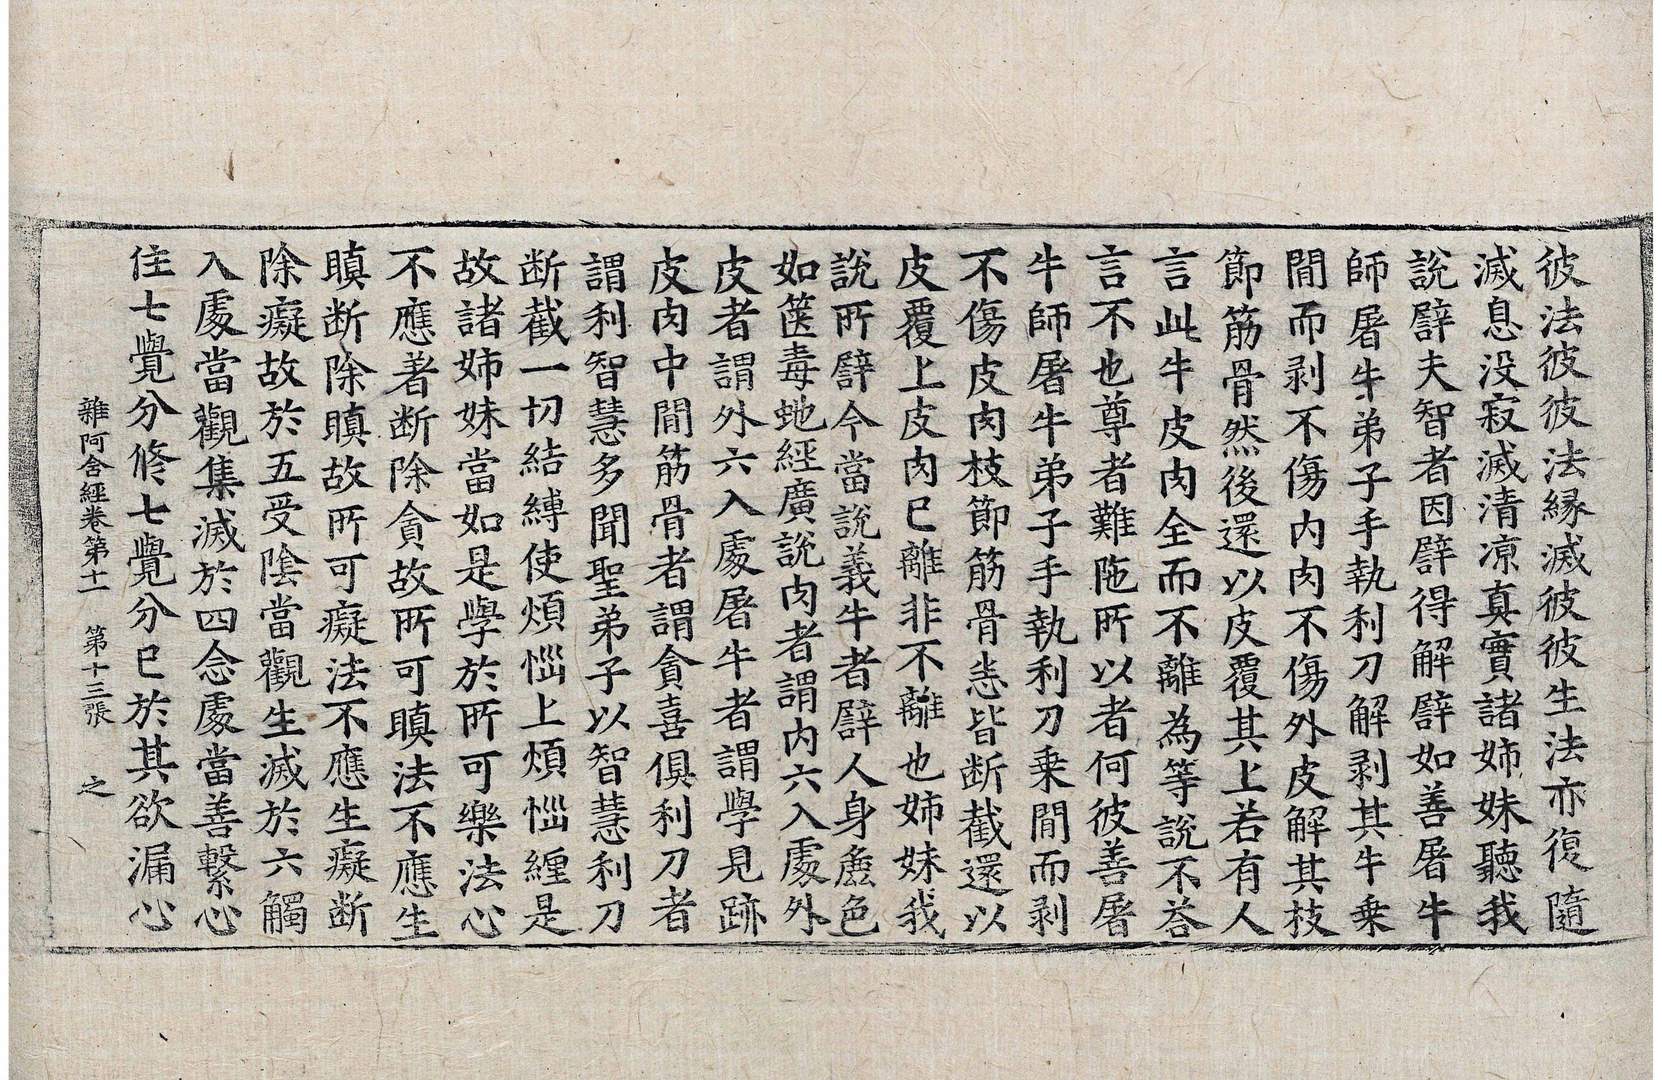 彼法彼彼法縁滅彼彼生法亦復隨
滅息没寂滅清凉真實諸姉妹聽我
說譬夫智者因譬得解譬如善屠牛
師屠牛弟子手執利刀解剥其牛乗
間而剥不傷内肉不傷外皮解其枝
節筋骨然後還以皮覆其上若有人
言此牛皮肉全而不離為等說不荅
言不也尊者難陁所以者何彼善屠
牛師屠牛弟子手執利刀乗間而剥
不傷皮肉枝節筋骨悉皆断截還以
皮覆上皮肉已離非不離也姉妹我
說所譬今當說義牛者譬人身麁色
如篋毒虵經廣說肉者謂内六入處外
皮者謂外六入處屠牛者謂學見跡
皮肉中間筋骨者謂貪喜俱利刀者
謂利智慧多聞聖弟子以智慧利刀
断截一切結縛使煩惱上煩惱纒是
故諸姉妹當如是學於所可樂法心
不應著断除貪故所可瞋法不應生
瞋断除瞋故所可癡法不應生癡断
除癡故於五受陰當觀生滅於六觸
入處當觀集滅於四念處當善繫心
住七覺分修七覺分已於其欲漏心
雜阿含經卷第十一　第十三張　之